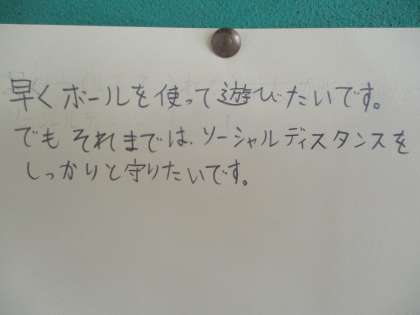 早くボールを使って遊びたいです。
でもそれまでは、ソーシャルディスタンスを
しっかりと守りたいです。